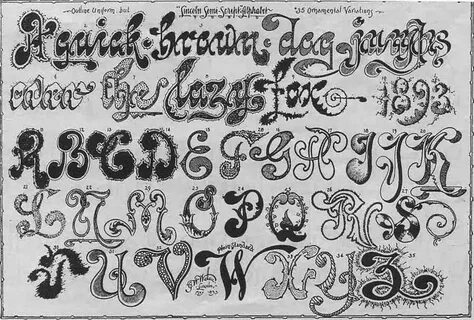 Outline Uniform, but Lincoln Semi-Script Alphabet 35 Ornamental Variations
A quick brown dog jumps
over the lazy fox 1893
A B C D E F G H I J K
L N M O P Q R S
T U V W X Y Z
Plain Standard